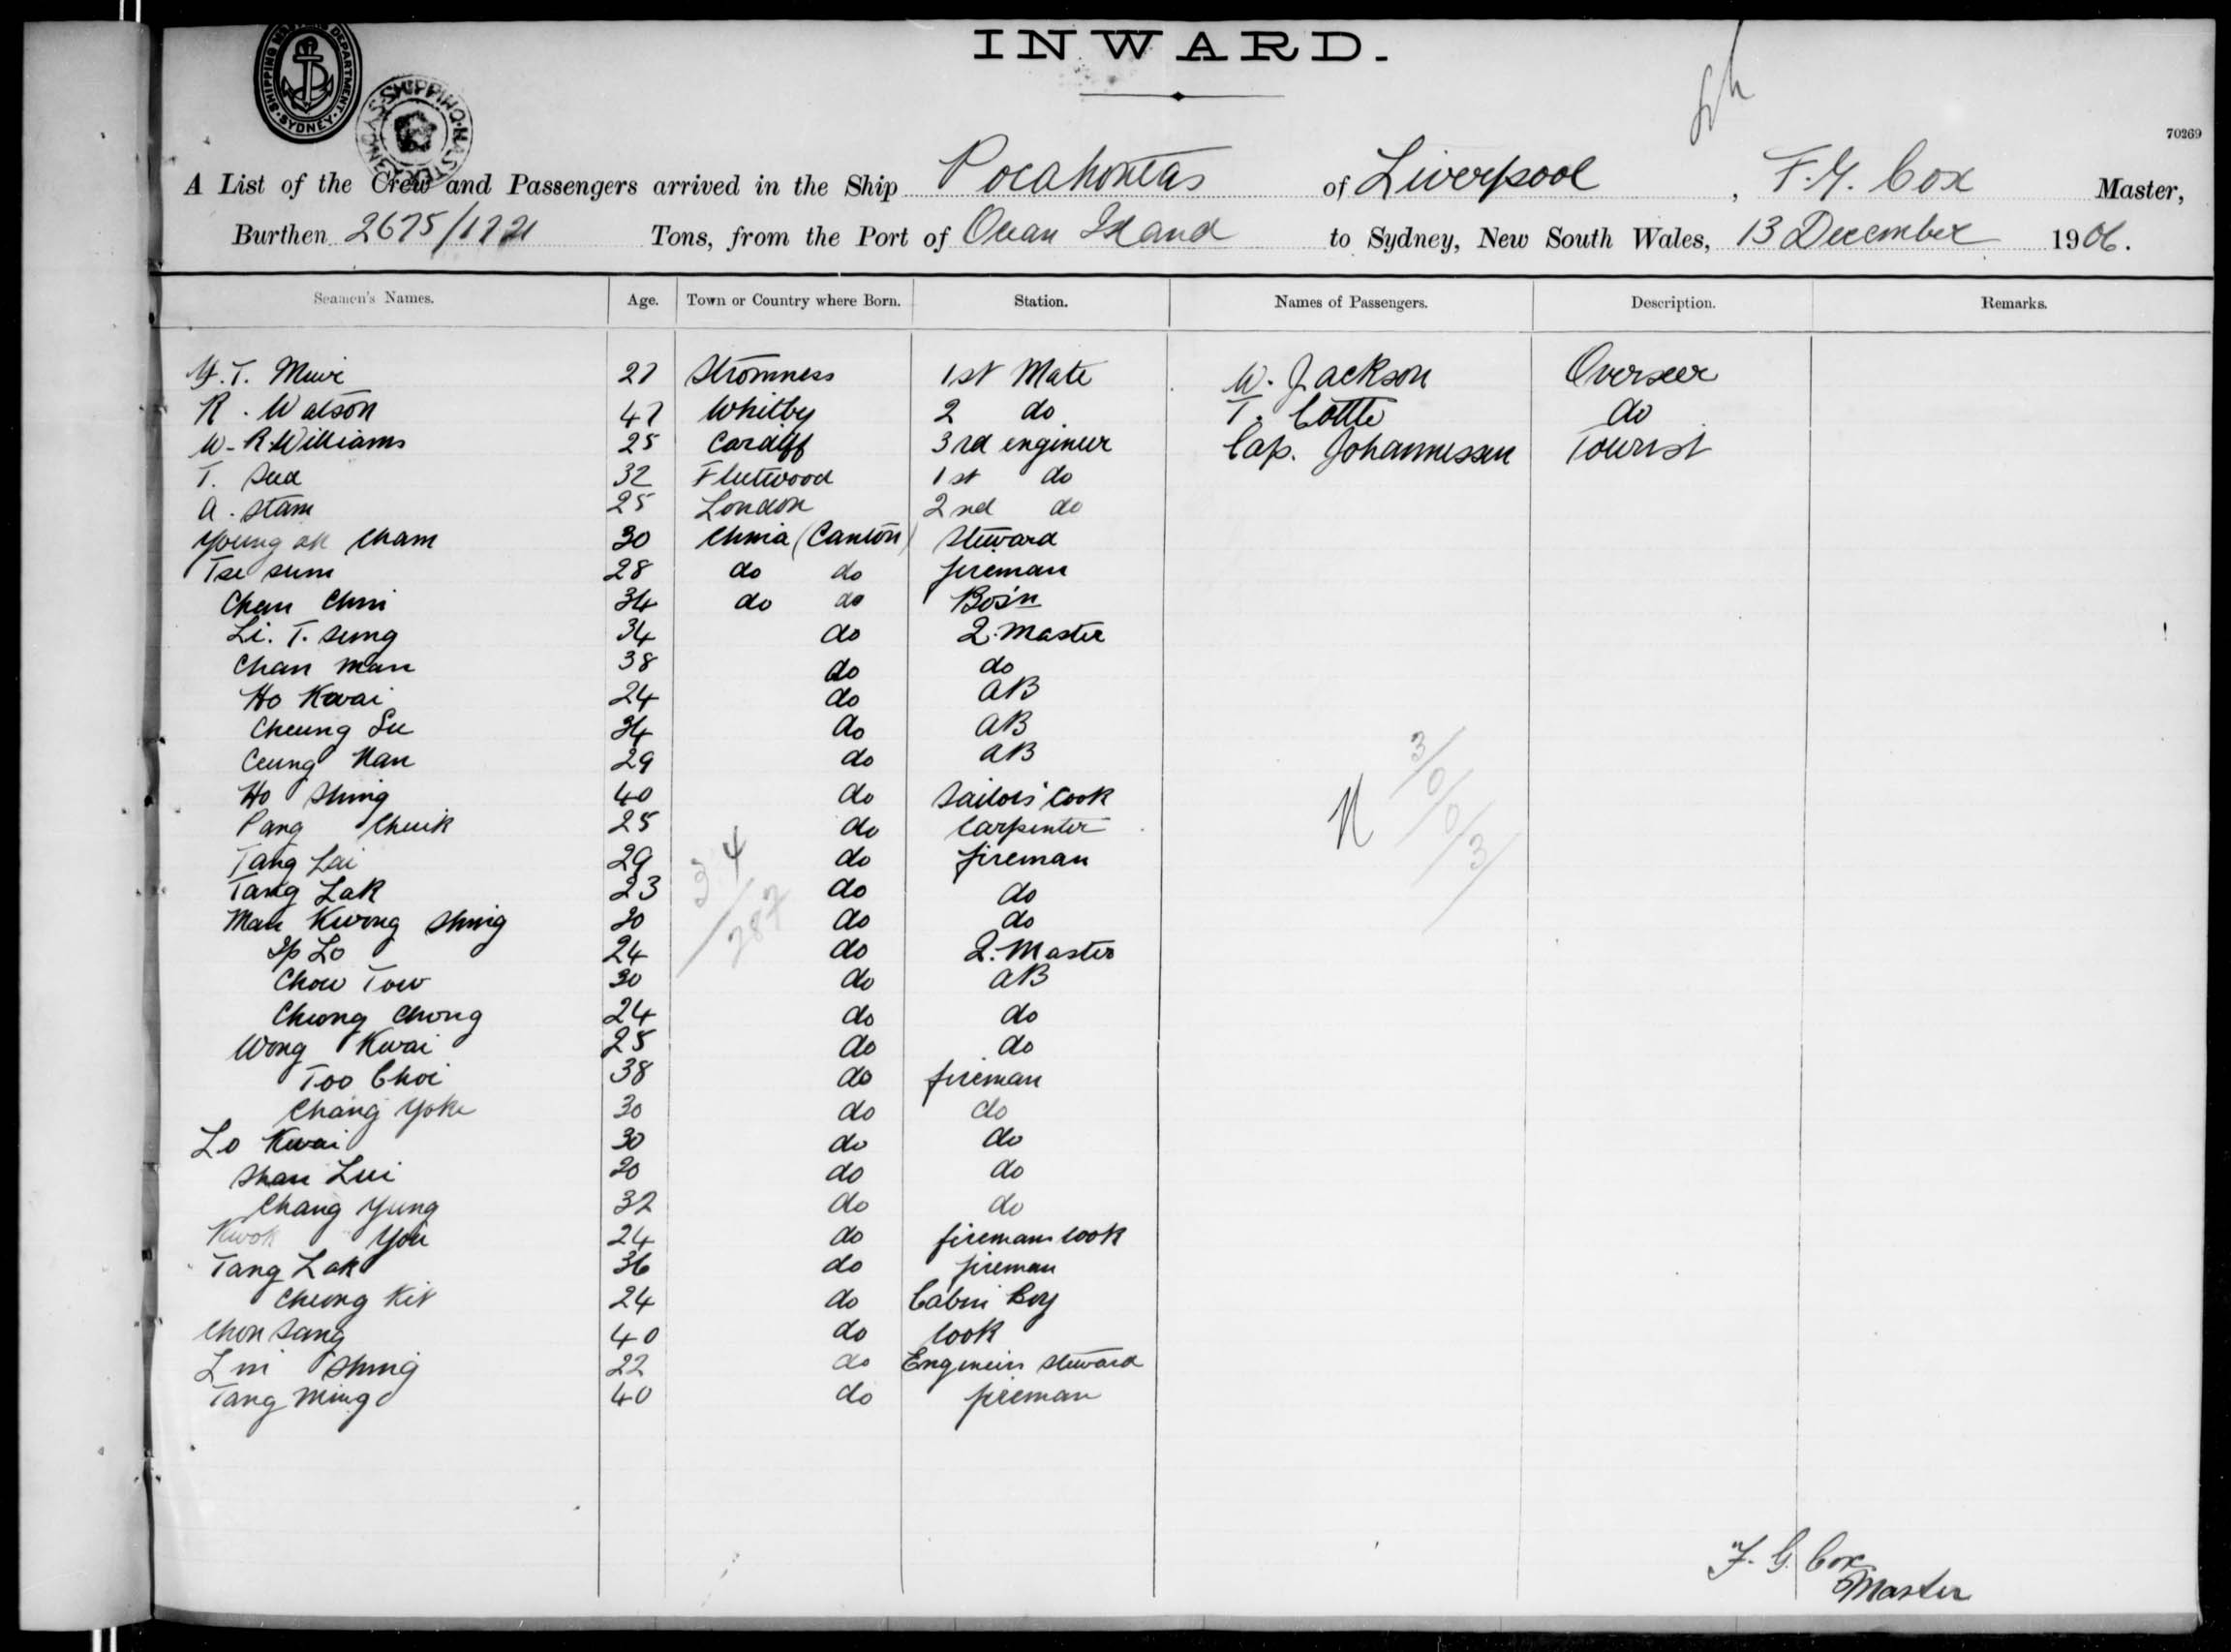 INWARD.
SHIPPING MASTER'S DEPARTMENT SYDNEY
SHIPPING MASTER'S SYDNEY
70269
A List of the Crew and Passengers arrived in the Ship Pocahontas of Liverpool, F.G. Cox Master,
Burthen 2675/1721 Tons, from the Port of Ocean Island to Sydney, New South Wales, 13 December 1906.
Seamen's Names. Age. Town or Country where Born. Station. Names of Passengers. Description. Remarks.
T. Muir 27 Stromness 1st Mate W. Jackson Overseer
R. Watson 47 Whitby 2 do T. Cottle do
W. R. Williams 25 Cardiff 3rd engineer Cap. Johannessen Tourist
T. 32 Fleetwood 1st do
A. Stam 25 London 2nd do
Young ah Cham 30 China (Canton) Steward
Tse Sum 28 do do fireman
Chan Chui 34 do do Bos'n
Li. T. Sung 34 do Q. Master
Chan Man 38 do do
Ho Kwai 24 do AB
Cheung Su 34 do AB
Ceung Nan 29 do AB
Ho Shing 40 do Sailors' Cook
Pang Cheuk 25 do Carpenter
Tang Lai 29 do fireman
Tang Lak 23 do do
Man Kwong Shing 30 do do
Ip Lo 24 do Q. Master
Chow Tow 30 do AB
Cheong Chong 24 do do
Wong Kwai 25 do do
Too Choi 38 do fireman
Chang Yoke 30 do do
Lo Kwai 30 do do
Shan Lui 20 do do
Chang Yung 32 do do
Kwok You 24 do firemans cook
Tang Lak 36 do fireman
Cheong Kit 24 do Cabin Boy
Chon Sang 40 do Cook
Lui Shing 22 do Engineers steward
Tang Ming 40 do fireman
34/287
N 3/0/0/3/
F. G. Cox
Master